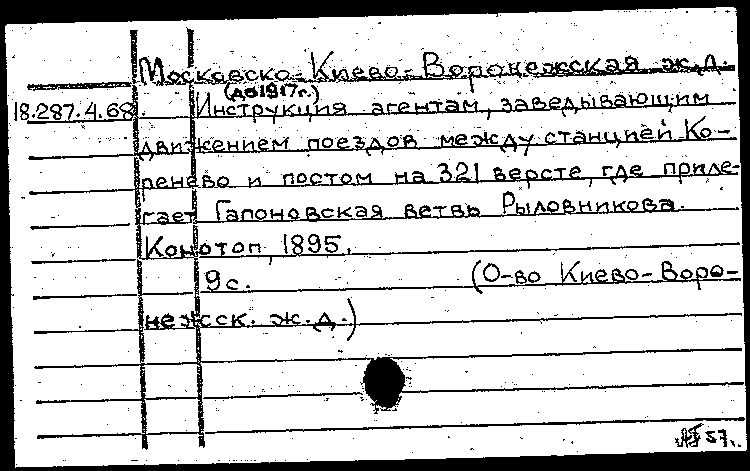 Московско-Киево-Воронежская ж.д.
(до 1917г.)
18.287.4.68. Инструкция агентам, заведывающим
движением поездов между станцией Ко-
ренево и постом на 321 версте, где приле-
гает Гапоновская ветвь Рыловникова.
Конотоп, 1895.
9с. (О-во Киево-Воро-
нежск. ж.д.)
57.